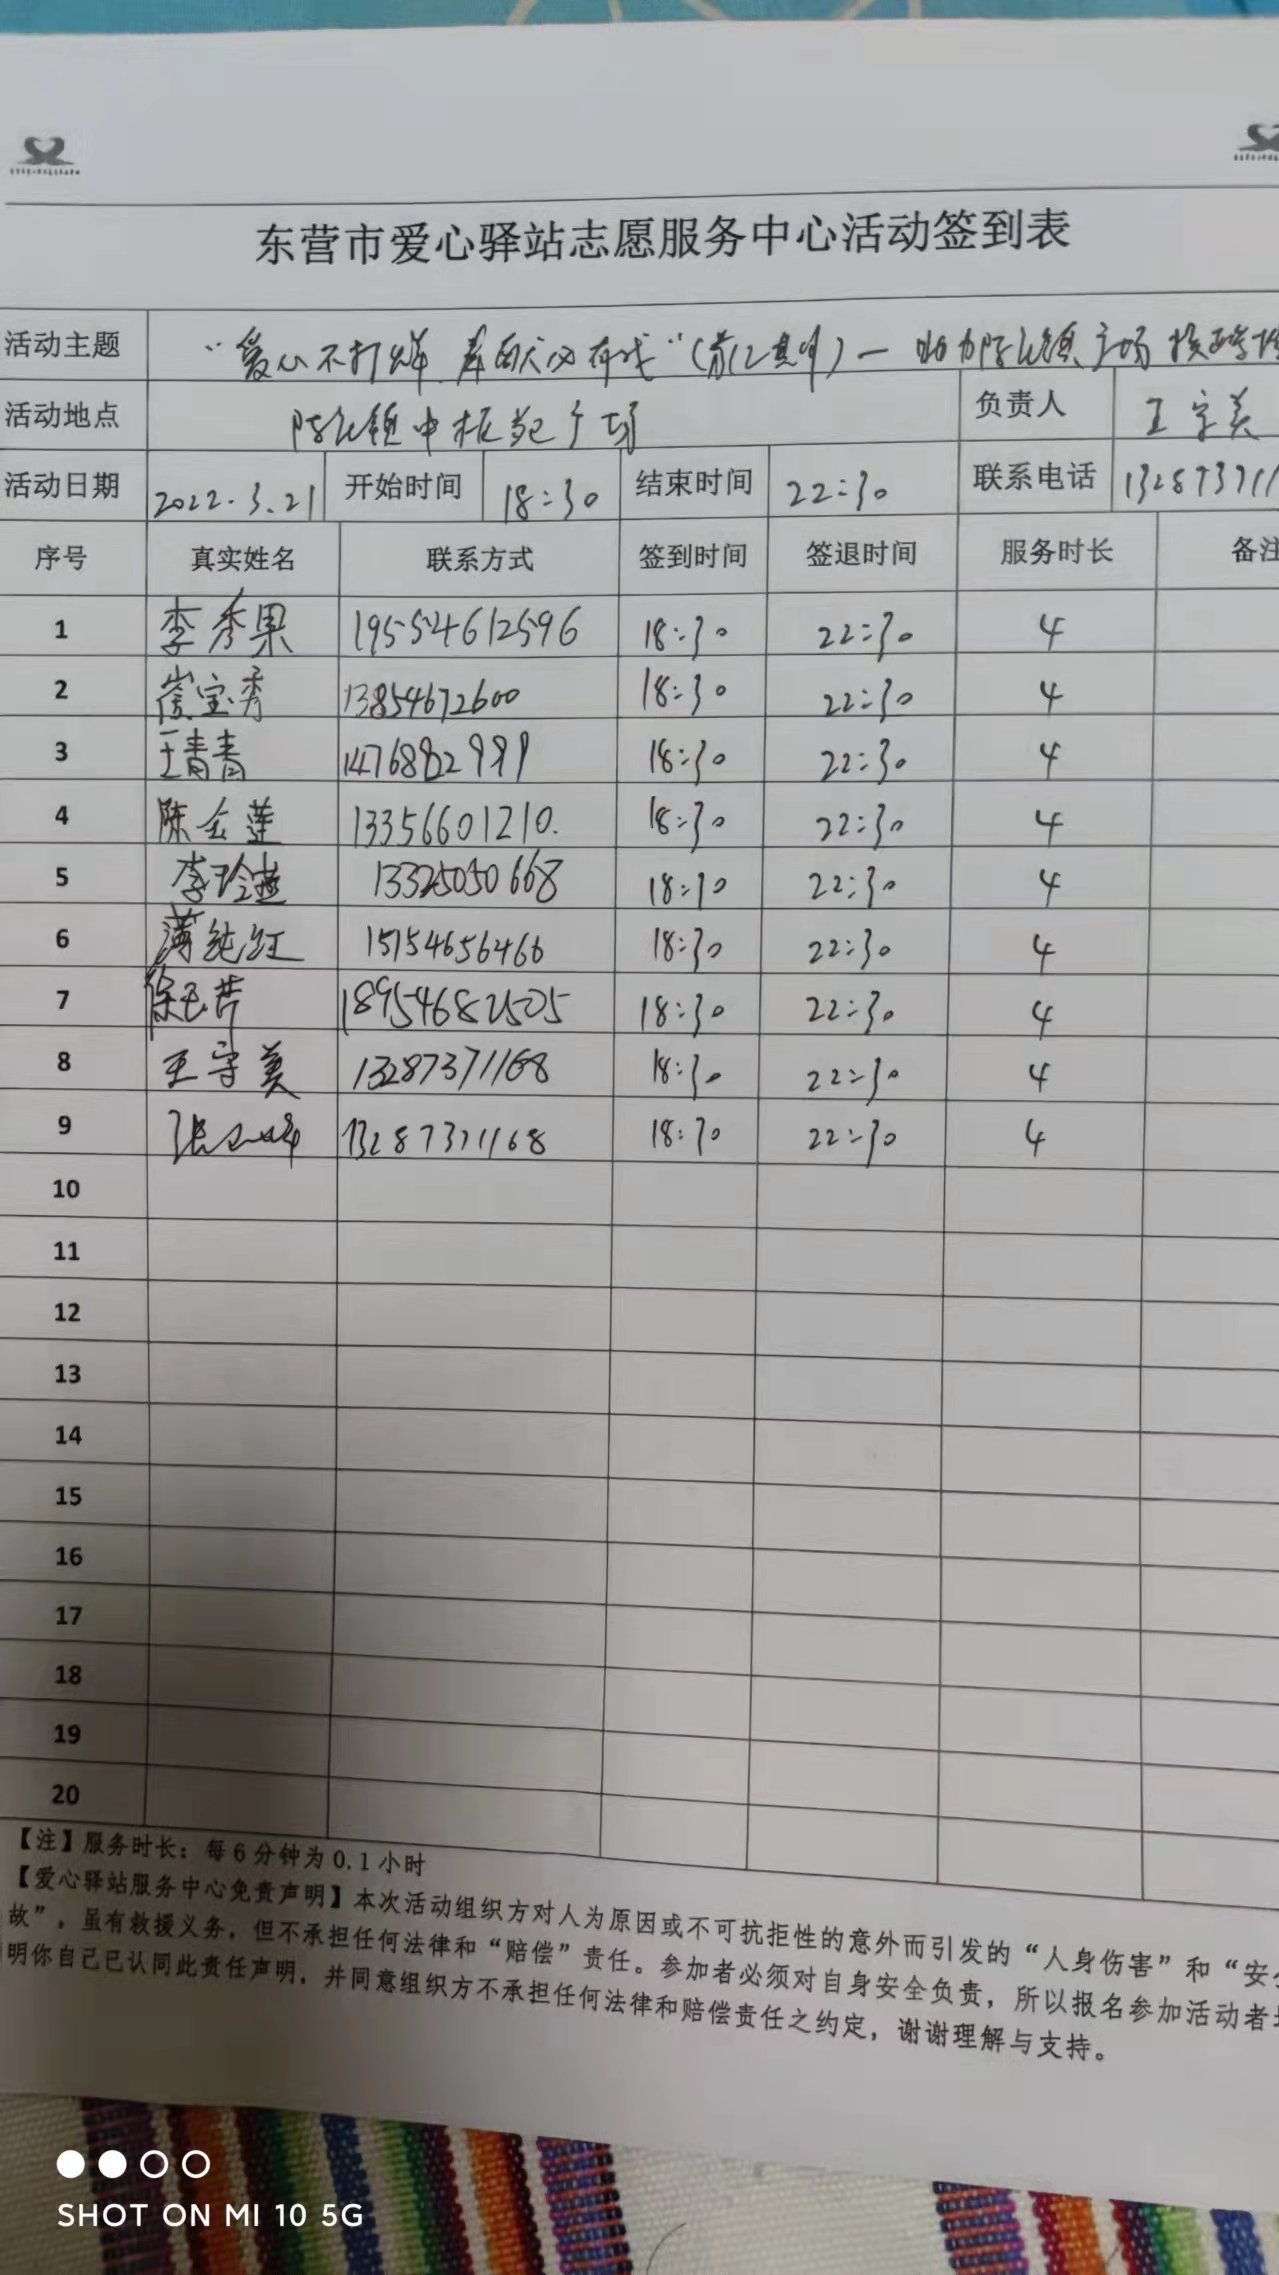 东营市爱心驿站志愿服务中心活动签到表
活动主题 "爱心不打烊
活动地点 广场 负责人 王守美
活动日期 2022.3.21 开始时间 18:30 结束时间 22:30 联系电话 132873711
序号 真实姓名 联系方式 签到时间 签退时间 服务时长 备注
1 李秀果 195524612596 18:30 22:30 4
2 崔宝秀 13854672600 18:30 22:30 4
3 王青青 18:30 22:30 4
4 陈会莲 13356601210. 18:30 22:30 4
5 李玲燕 13325050668 18:30 22:30 4
6 薄纯红 15154656466 18:30 22:30 4
7 徐玉芹 18954682505 18:30 22:30 4
8 王守美 13287371168 18:30 22:30 4
9 张 13287371168 18:30 22:30 4
10
11
12
13
14
15
16
17
18
19
20
【注】服务时长：每6分钟为0.1小时
【爱心驿站服务中心免责声明】本次活动组织方对人为原因或不可抗拒性的意外而引发的“人身伤害”和“安
故”，虽有救援义务，但不承担任何法律和“赔偿”责任。参加者必须对自身安全负责，所以报名参加活动者
明你自己已认同此责任声明，并同意组织方不承担任何法律和赔偿责任之约定，谢谢理解与支持。
SHOT ON MI 10 5G